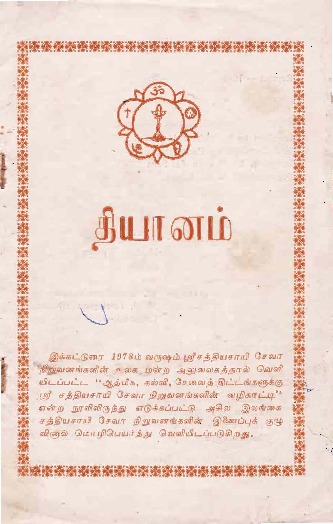 ௐ
தியானம்
இக்கட்டுரை 1978ம் வருஷம் ஸ்ரீ சத்தியசாயி சேவா
நிறுவனங்களின் உலக மன்ற அலுவலகத்தால் வெளி
யிடப்பட்ட "ஆத்மீக, கல்வி, சேவைத் திட்டங்களுக்கு
ஸ்ரீ சத்தியசாயி சேவா நிறுவனங்களின் வழிகாட்டி"
என்ற நூலிலிருந்து எடுக்கப்பட்டு அகில இலங்கை
சத்தியசாயி சேவா நிறுவனங்களின் இணைப்புக் குழு
வினால் மொழிபெயர்த்து வெளியிடப்படுகிறது.